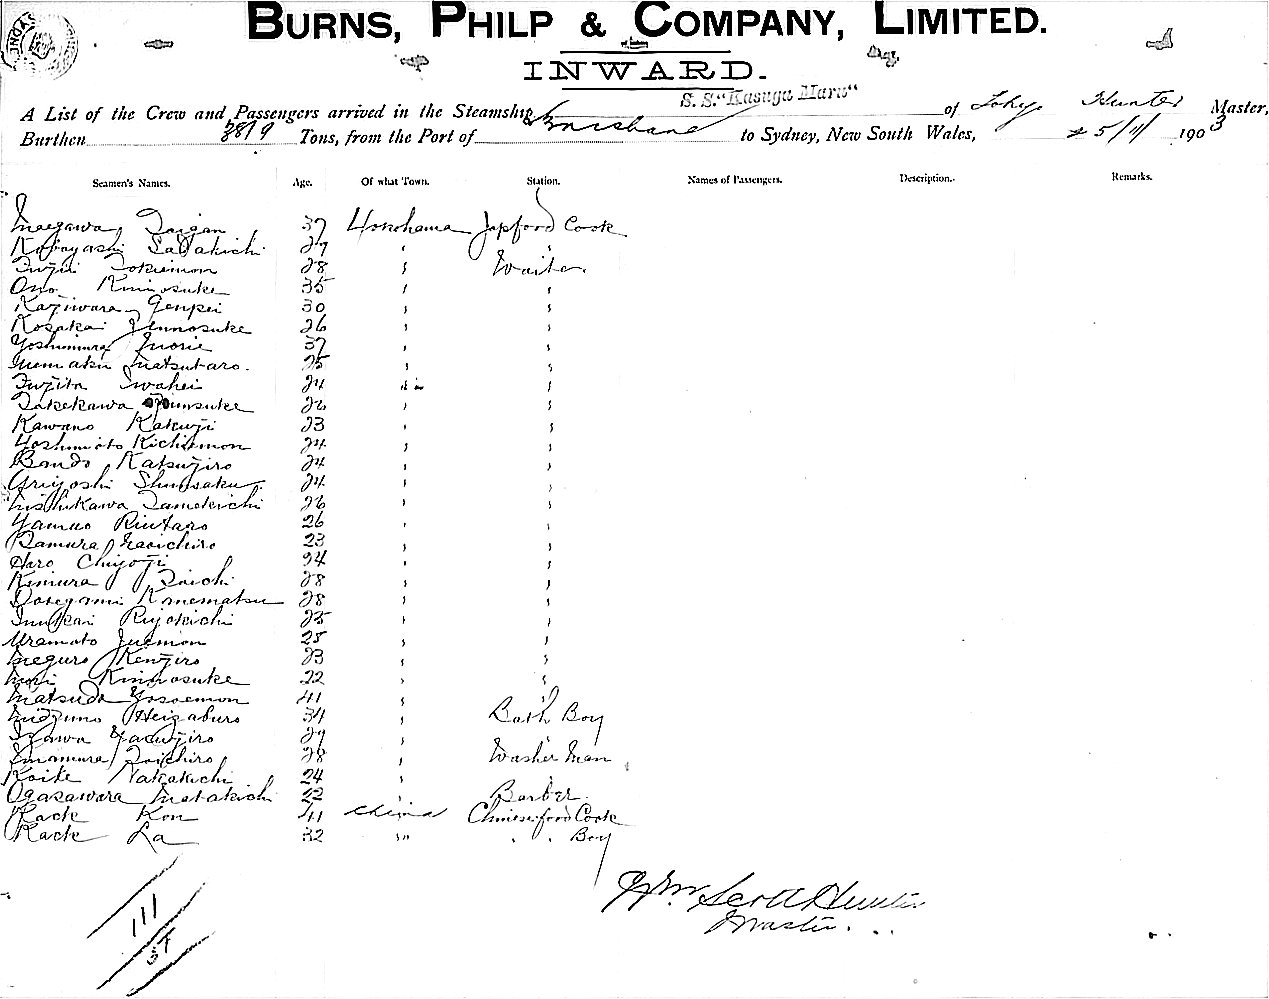 BURNS, PHILP & COMPANY, LIMITED.
INWARD.
A List of the Crew and Passengers arrived in the Steamship S.S. "Kasuga Maru" of Tokyo Hunter Master,
Burthen 3819 Tons, from the Port of Brisbane to Sydney, New South Wales, 25/11/ 1903
Seamen's Names. Age. Of what Town. Station. Names of Passengers. Description. Remarks.
Maegawa Taigan 37 Yokohama Japfood Cook
Kobayashi Sadakichi 27 " "
Fujii Tokiemon 28 " Waiter
Ono Kinnosuke 35 " "
Kajiwara Genpei 30 " "
Kosakai Jinnosuke 26 " "
Yoshimura Morie 37 " "
Matsutaro 25 " "
Fujita Iwahei 24 " "
Takekawa 26 " "
Kawano Kakuji 23 " "
Yoshimoto Kichiemon 24 " "
Bando Katsujiro 24 " "
Ariyoshi Shunsaku 24 " "
Nishikawa Tamekichi 26 " "
Yamao Rintaro 26 " "
Naoichiro 23 " "
Haro Chiyoji 24 " "
Kimura Taichi 28 " "
Kanematsu 28 " "
Riyokichi 25 " "
Uramoto Juemon 25 " "
Meguro Kenjiro 23 " "
Mori Kinnosuke 22 " "
Matsuda 41 " "
Midzuno Heizaburo 34 " Bath Boy
Yasujiro 29 " "
Imamura Taichiro 28 " Washer Man
Koike Nakakichi 24 " "
Ogasawara Matakichi 22 " Barber
Kack Kon 41 China Chinesefood Cook
Kack La 32 " " " Boy
Wm Scott Hunter
Master
111